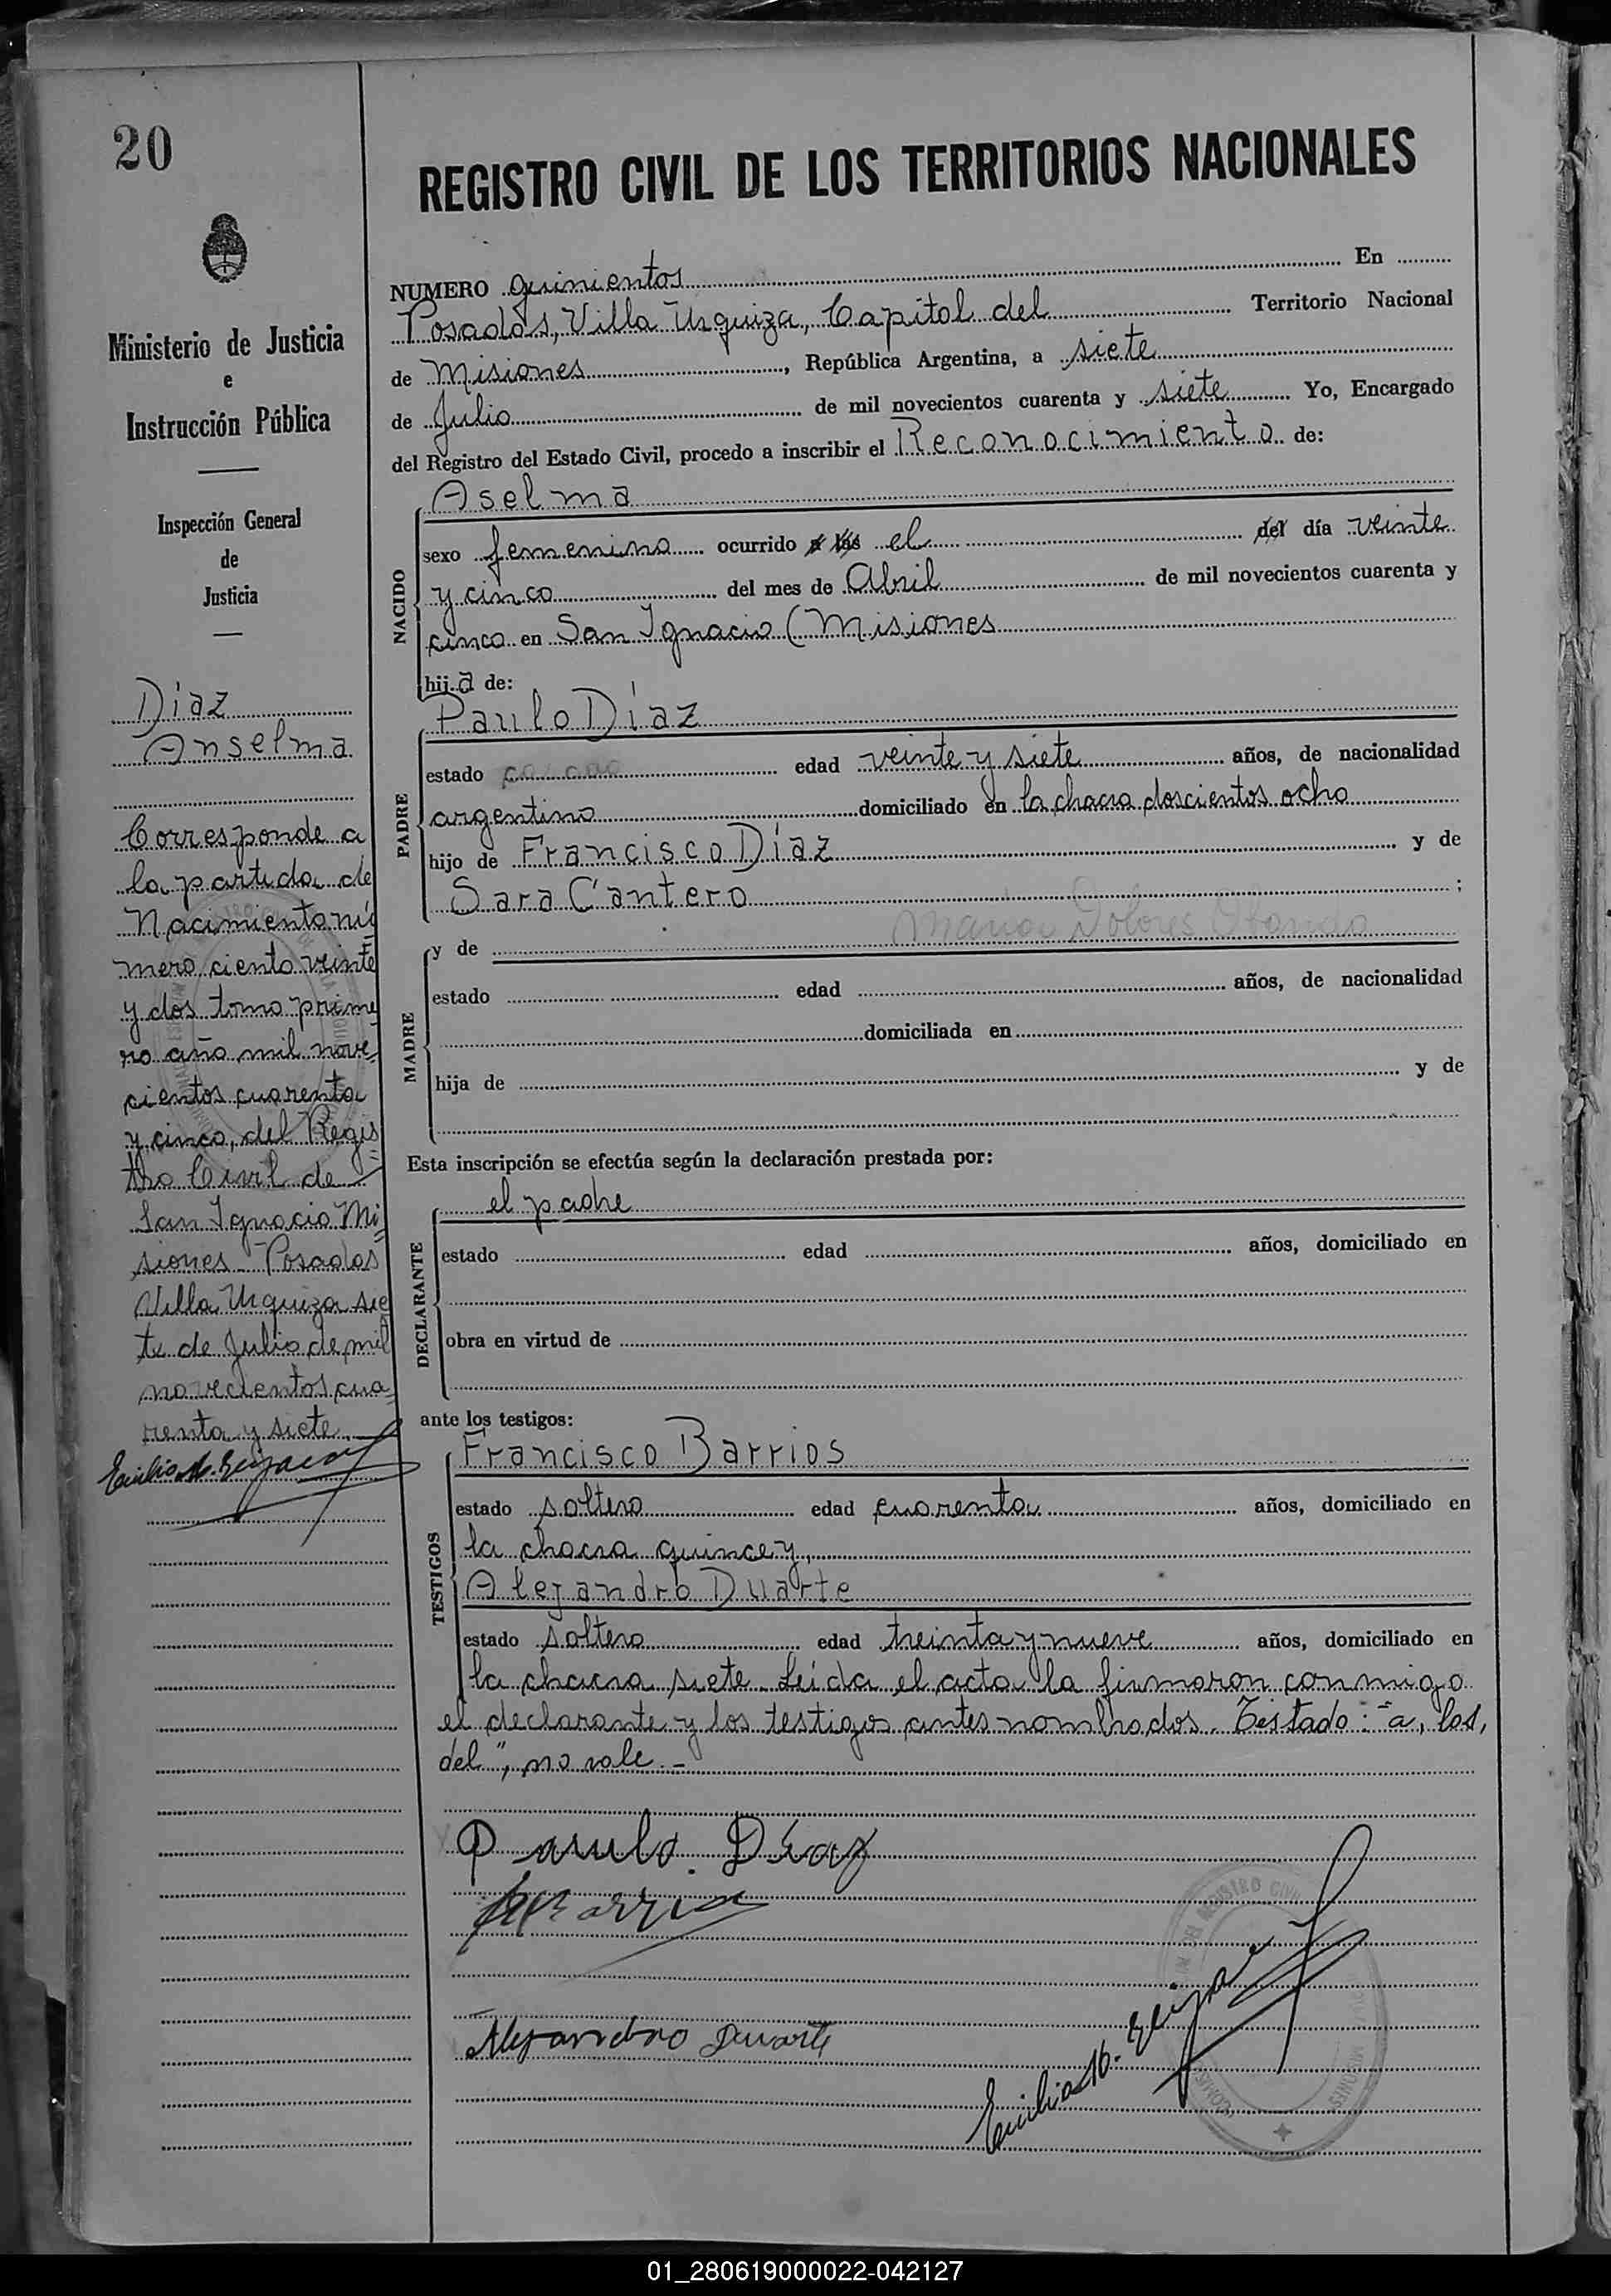 20
REGISTRO CIVIL DE LOS TERRITORIOS NACIONALES
Ministerio de Justicia
e
Instrucción Pública
Inspección General
de
Justicia
Diaz
Anselma
Corresponde a
la partida de
Nacimiento nú
mero ciento veinte
y dos tomo prime
ro año mil nove
cientos cuarenta
y cinco, del Regis
tro Civil de
San Ignacio Mi
siones Posadas
Villa Urquiza sie
te de Julio de mil
novecientos cua
renta y siete.
NUMERO quinientos En
Posadas, Villa Urquiza, Capital del Territorio Nacional
de Misiones, República Argentina, a siete
de Julio de mil novecientos cuarenta y siete Yo, Encargado
del Registro del Estado Civil, procedo a inscribir el Reconocimiento de:
NACIDO
Aselma
sexo femenino ocurrido a las el del día veinte
y cinco del mes de Abril de mil novecientos cuarenta y
cinco en San Ignacio (Misiones
hija de:
PADRE
Paulo Díaz
estado casado edad veinte y siete años, de nacionalidad
argentino domiciliado en la chacra doscientos ocho
hijo de Francisco Díaz y de
Sara Cantero ;
MADRE
y de Maria Dolores
estado edad años, de nacionalidad
domiciliada en
hija de y de
Esta inscripción se efectúa según la declaración prestada por:
DECLARANTE
el padre
estado edad años, domiciliado en
obra en virtud de
ante los testigos:
TESTIGOS
Francisco Barrios
estado soltero edad cuarenta años, domiciliado en
la chacra quince y,
Alejandro Duarte
estado soltero edad treinta y nueve años, domiciliado en
la chacra siete. Leída el acta la firmaron conmigo
el declarante y los testigos antes nombrados. Testado: "a, las,
del", no vale.-
Paulo. Díaz
Alejandro Duarte
01_280619000022-042127